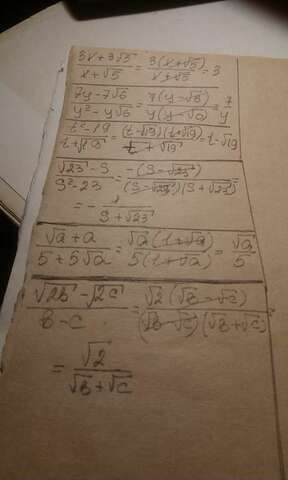 3x+3√5 / x+√5 = 3(x+√5) / x+√5 = 3
7y-7√6 / y²-y√6 = 7(y-√6) / y(y-√6) = 7 / y
t²-19 / t+√19 = (t-√19)(t+√19) / t+√19 = t-√19
√23-S / S²-23 = -(S-√23) / (S-√23)(S+√23)
= - 1 / S+√23
√a+a / 5+5√a = √a(1+√a) / 5(1+√a) = √a / 5
√2b-√2c / b-c = √2(√b-√c) / (√b-√c)(√b+√c) =
= √2 / √b+√c